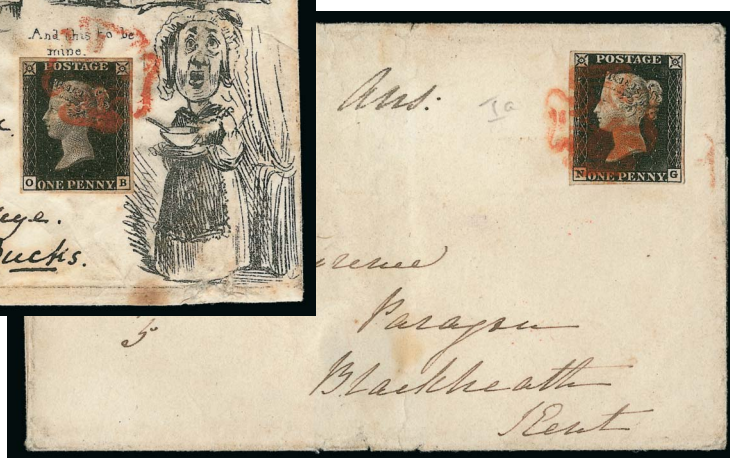 And this to be
mine.
POSTAGE
O ONE PENNY B
Bucks.
Ans:
POSTAGE
N ONE PENNY G
5
Paragon
Blackheath
Kent